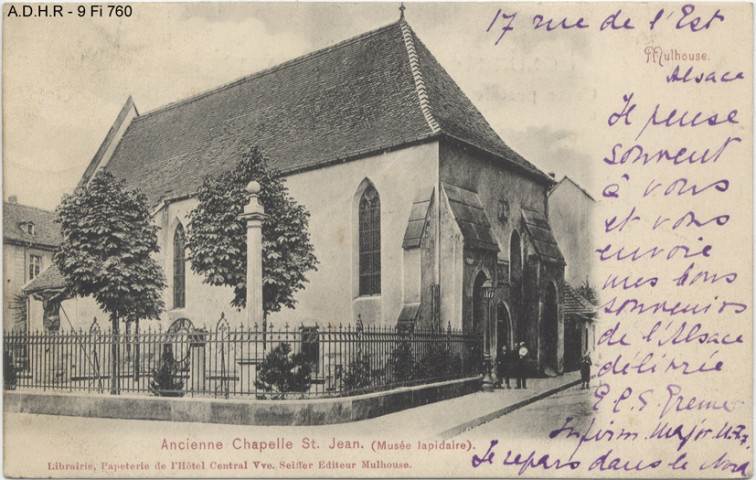 A.D.H.R - 9 Fi 760
17 rue de l'Est
Mulhouse.
Alsace
Je pense
souvent
à vous
et vous
envoie
mes bons
souvenirs
de l'Alsace
délivrée
Infirm. Major
Je repars dans le Nord
Ancienne Chapelle St. Jean. (Musée lapidaire).
Librairie, Papeterie de l'Hôtel Central Vve. Seiffer Editeur Mulhouse.